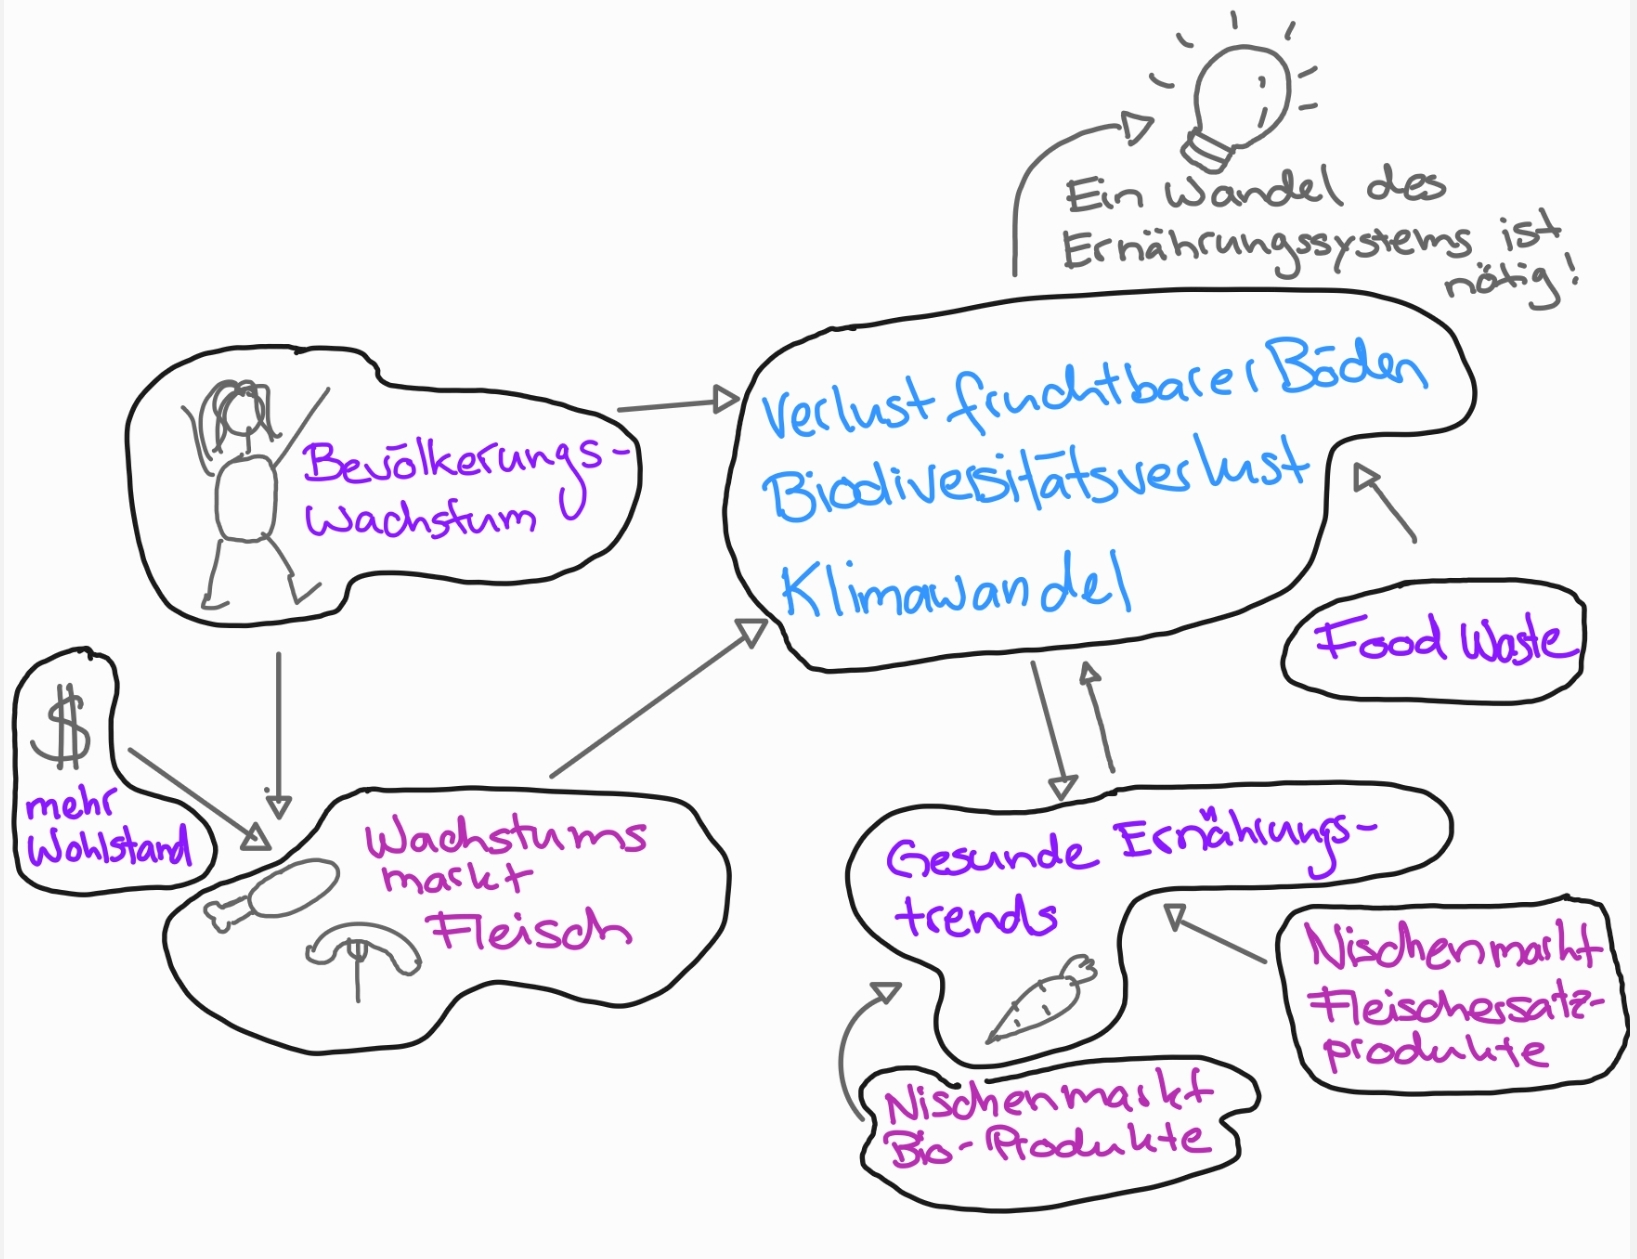 Ein Wandel des
Ernährungssystems ist
nötig!
Verlust fruchtbarer Böden
Biodiversitätsverlust
Klimawandel
Bevölkerungs-
wachstum
Food Waste
$
mehr
Wohlstand
Wachstums
markt
Fleisch
Gesunde Ernährungs-
trends
Nischenmarkt
Fleischersatz-
produkte
Nischenmarkt
Bio-Produkte